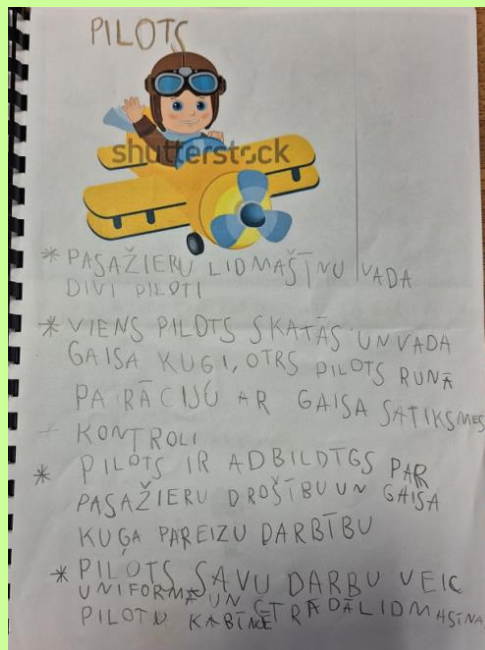 PILOTS
shutterstock
* PASAŽIERU LIDMAŠĪNU VADA
DIVI PILOTI
* VIENS PILOTS SKATĀS UN VADA
GAISA KUGI, OTRS PILOTS RUNĀ
PA RĀCIJU AR GAISA SATIKSMES
KONTROLI
* PILOTS IR ADBILDTGS PAR
PASAŽIERU DROŠĪBU UN GAISA
KUĢA PAREIZU DARBĪBU
* PILOTS SAVU DARBU VEIC
UNIFORMĀ UN
PILOTU KABĪNĒ LIDMAŠĪNA